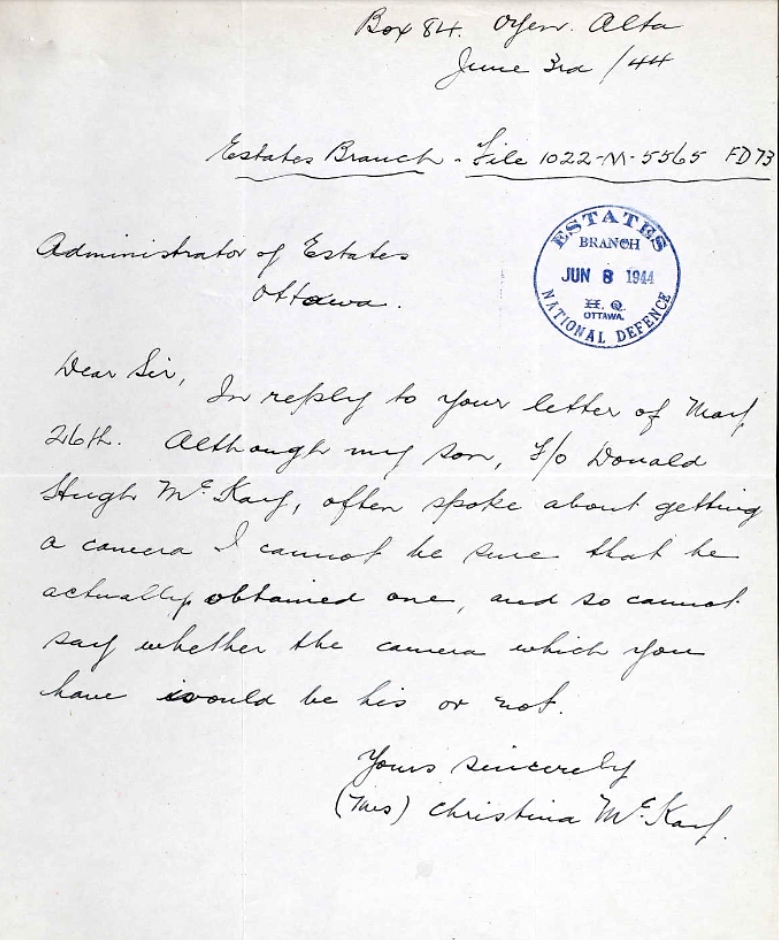 Box 84. Oyen. Alta
June 3rd /44
Estates Branch - File 1022-M-5565 FD 73
Administrator of Estates
Ottawa.
ESTATES
BRANCH
JUN 8 1944
H. Q.
OTTAWA.
NATIONAL DEFENCE
Dear Sir,
In reply to your letter of May
26th. Although my son, F/o Donald
Hugh McKay, often spoke about getting
a camera I cannot be sure that he
actually obtained one, and so cannot
say whether the camera which you
have would be his or not.
Yours sincerely
(Mrs) Christina McKay.